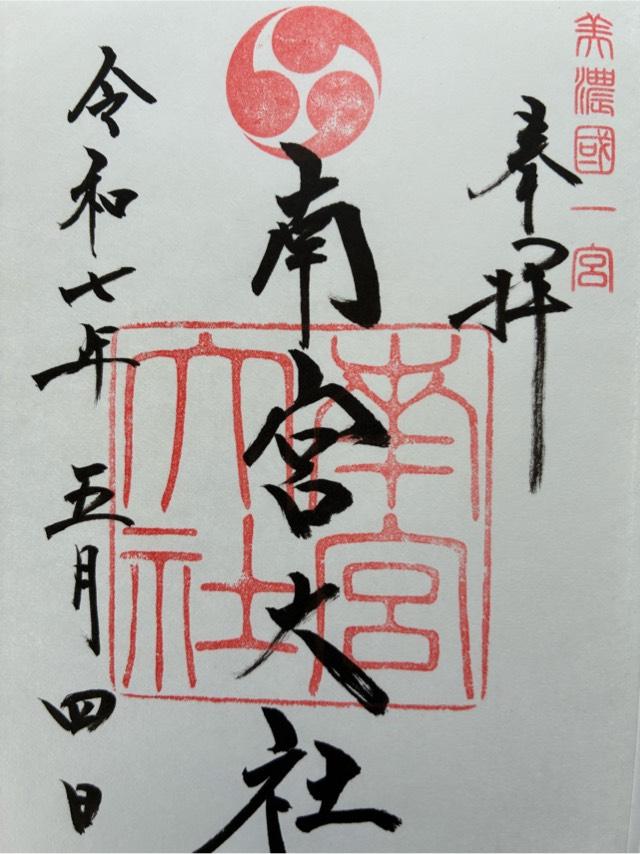 美濃國一宮
奉拝
南宮大社
南宮大社
令和七年 五月四日